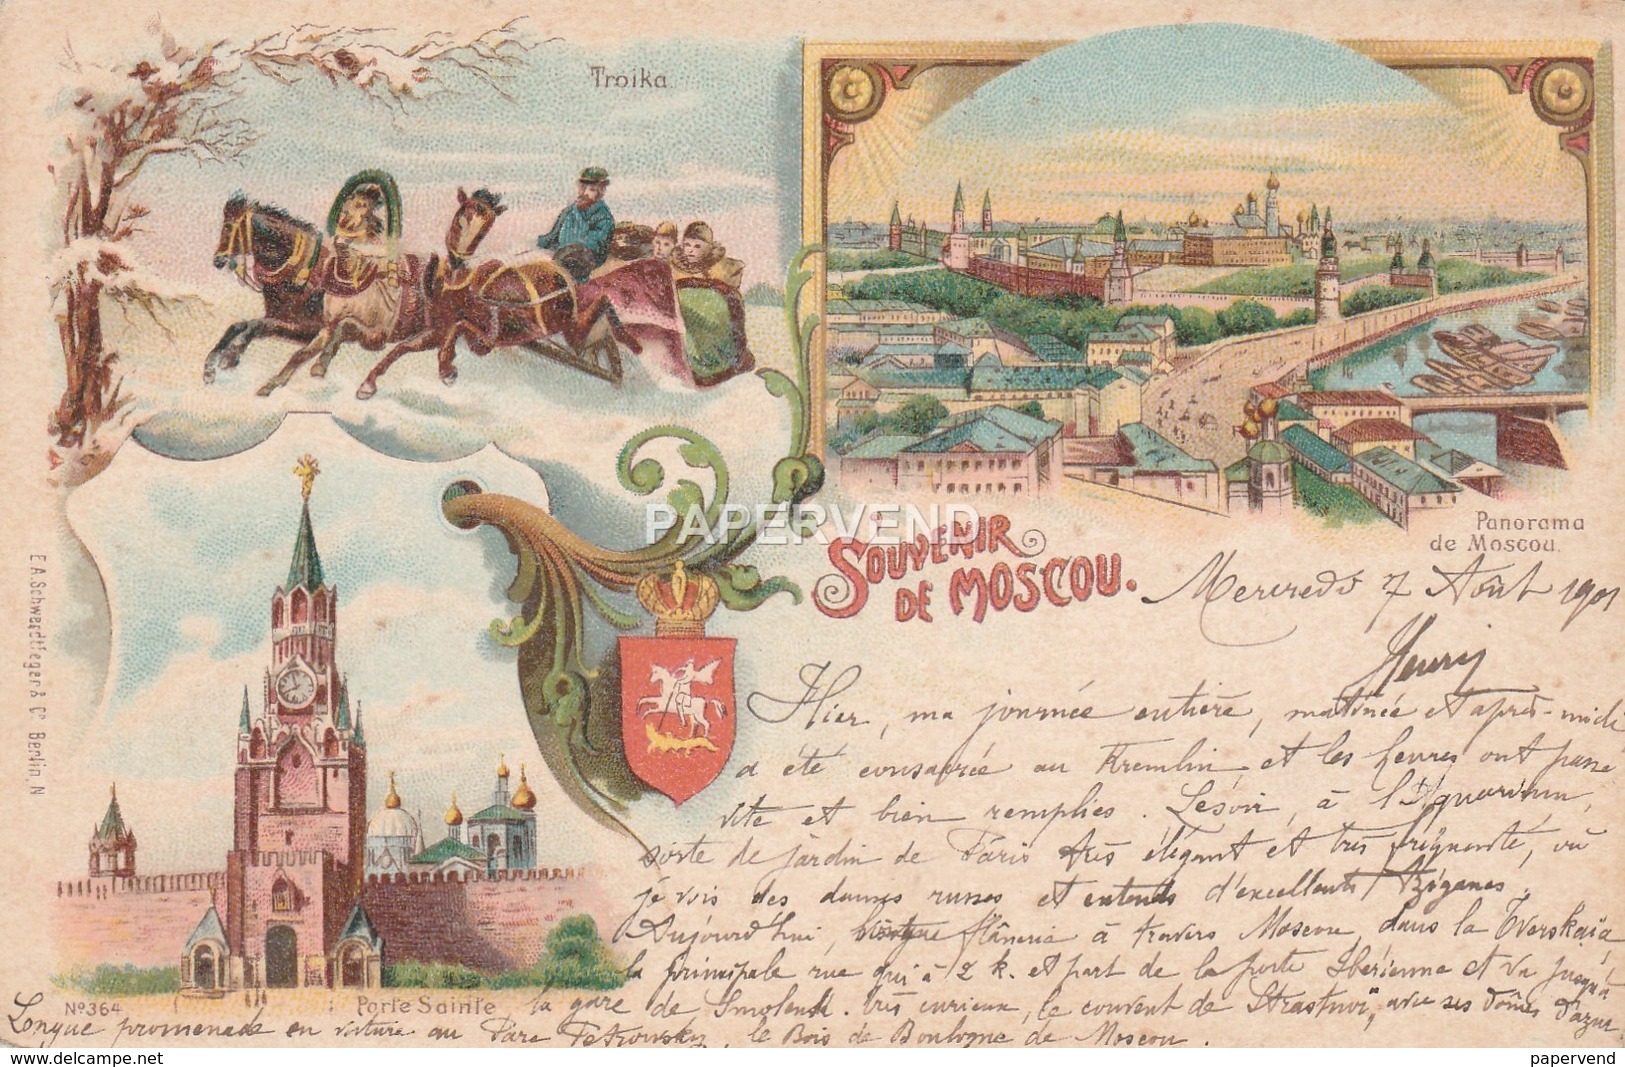 Troika.
Panorama
de Moscou.
PAPERVEND
SOUVENIR
DE MOSCOU.
Mercredi 7 Août 1901
Henry
Hier, ma journée entière, matinée et après-midi
a été consacrée au Kremlin, et les heures ont passé
vite et bien remplies. Le soir, à l'Aquarium,
sorte de jardin de Paris très élégant et très fréquenté, où
je vois des danses russes et entends d'excellents Tziganes.
Aujourd'hui, flânerie à travers Moscou, dans la Tverskaïa,
la principale rue qui a 2 k. et part de la porte Ibérienne et va jusqu'à
la gare de Smolensk. très curieux, le couvent de Strastnoï, avec ses dômes d'azur
Longue promenade en voiture au Parc Petrowsky, le Bois de Boulogne de Moscou.
E.A. Schwerdtfeger & Co Berlin, N
No 364
Porte Sainte
delcampe.net
papervend